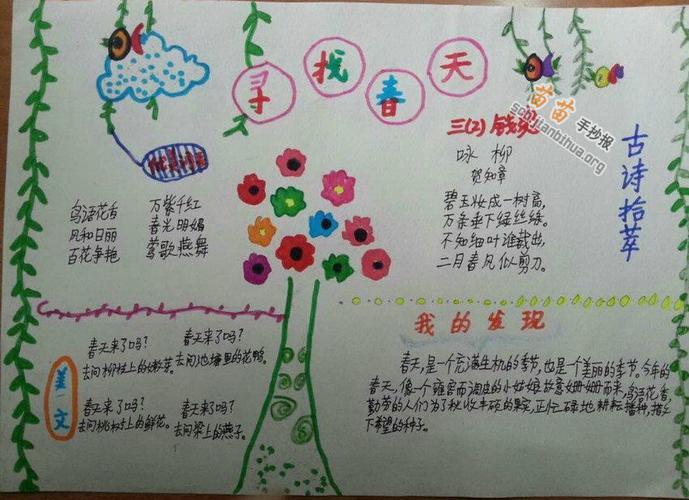 寻找春天
三(2)
苗苗
手抄报
古诗拾萃
咏柳
贺知章
碧玉妆成一树高,
万条垂下绿丝绦。
不知细叶谁裁出,
二月春风似剪刀。
鸟语花香 万紫千红
风和日丽 春光明媚
百花争艳 莺歌燕舞
美文
春天来了吗? 春天来了吗?
去问柳树上的嫩芽。去问池塘里的花鸭。
春天来了吗? 春天来了吗?
去问桃树上的鲜花。去问梁上的燕子。
我的发现
春天,是一个充满生机的季节,也是一个美丽的季节。今年的
春天,像个雍容而调皮的小姑娘故意姗姗而来,鸟语花香,
勤劳的人们为了秋收丰硕的果实,正忙碌地耕耘播种,播
下希望的种子。